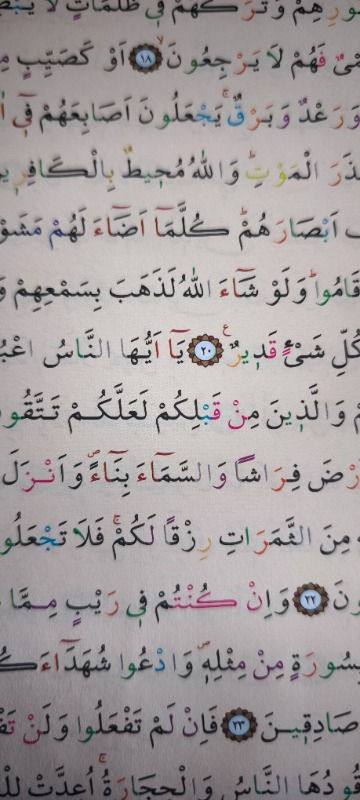 بِنُورِهِمْ وَتَرَكَهُمْ فِي ظُلُمَاتٍ لَا
فَهُمْ لَا يَرْجِعُونَ ﴿١٨﴾ اَوْ كَصَيِّبٍ
وَرَعْدٌ وَبَرْقٌۚ يَجْعَلُونَ اَصَابِعَهُمْ فٓي
حَذَرَ الْمَوْتِۜ وَاللّٰهُ مُحٖيطٌ بِالْكَافِرٖينَ
اَبْصَارَهُمْۜ كُلَّمَٓا اَضَٓاءَ لَهُمْ مَشَوْا
قَامُواۜ وَلَوْ شَٓاءَ اللّٰهُ لَذَهَبَ بِسَمْعِهِمْ
كُلِّ شَيْءٍ قَدٖيرٌࣖ ﴿٢٠﴾ يَٓا اَيُّهَا النَّاسُ
وَالَّذٖينَ مِنْ قَبْلِكُمْ لَعَلَّكُمْ تَتَّقُونَ
فِرَاشًا وَالسَّمَٓاءَ بِنَٓاءًۖ وَاَنْزَلَ
مِنَ الثَّمَرَاتِ رِزْقًا لَكُمْۚ فَلَا تَجْعَلُوا
﴿٢٢﴾ وَاِنْ كُنْتُمْ فٖي رَيْبٍ مِمَّا
بِسُورَةٍ مِنْ مِثْلِهٖۖ وَادْعُوا شُهَدَٓاءَكُمْ
صَادِقٖينَ ﴿٢٣﴾ فَاِنْ لَمْ تَفْعَلُوا وَلَنْ
وَقُودُهَا النَّاسُ وَالْحِجَارَةُۚ اُعِدَّتْ